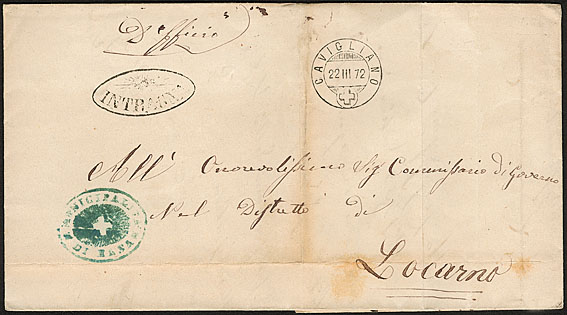 D'Ufficio
CAVIGLIANO
22 III 72
INTRAGNA
All' Onorevolissimo Sig Commissario di Governo
Nel Distretto di
Locarno
MUNICIPALITÀ
DI